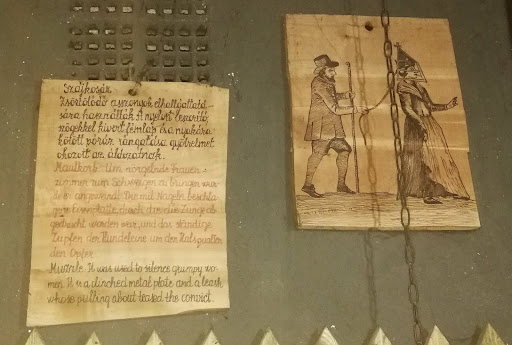 Szájkosár
Zsörtölődő asszonyok elhallgattatá-
sára használták. A nyelvet leszorító,
szögekkel kivert fémlap és a nyakára
kötött póráz rángatása gyötrelmet
okozott az áldozatnak.
Maulkorb: Um nörgelnde Frauen-
zimmer zum Schweigen zu bringen wur-
de es angewandt. Die mit Nägeln beschla-
gene Eisenplatte, durch die die Zunge ab-
gedrückt werden war, und das ständige
Zupfen der Hundeleine um den Hals quälten
den Opfer.
Muzzle: It was used to silence grumpy wo-
men. It is a clinched metal plate and a leash
whose pulling about teased the convict.